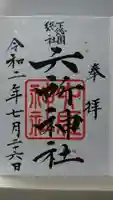 奉拝
下総國
総社
六所神社
令和二年七月二六日